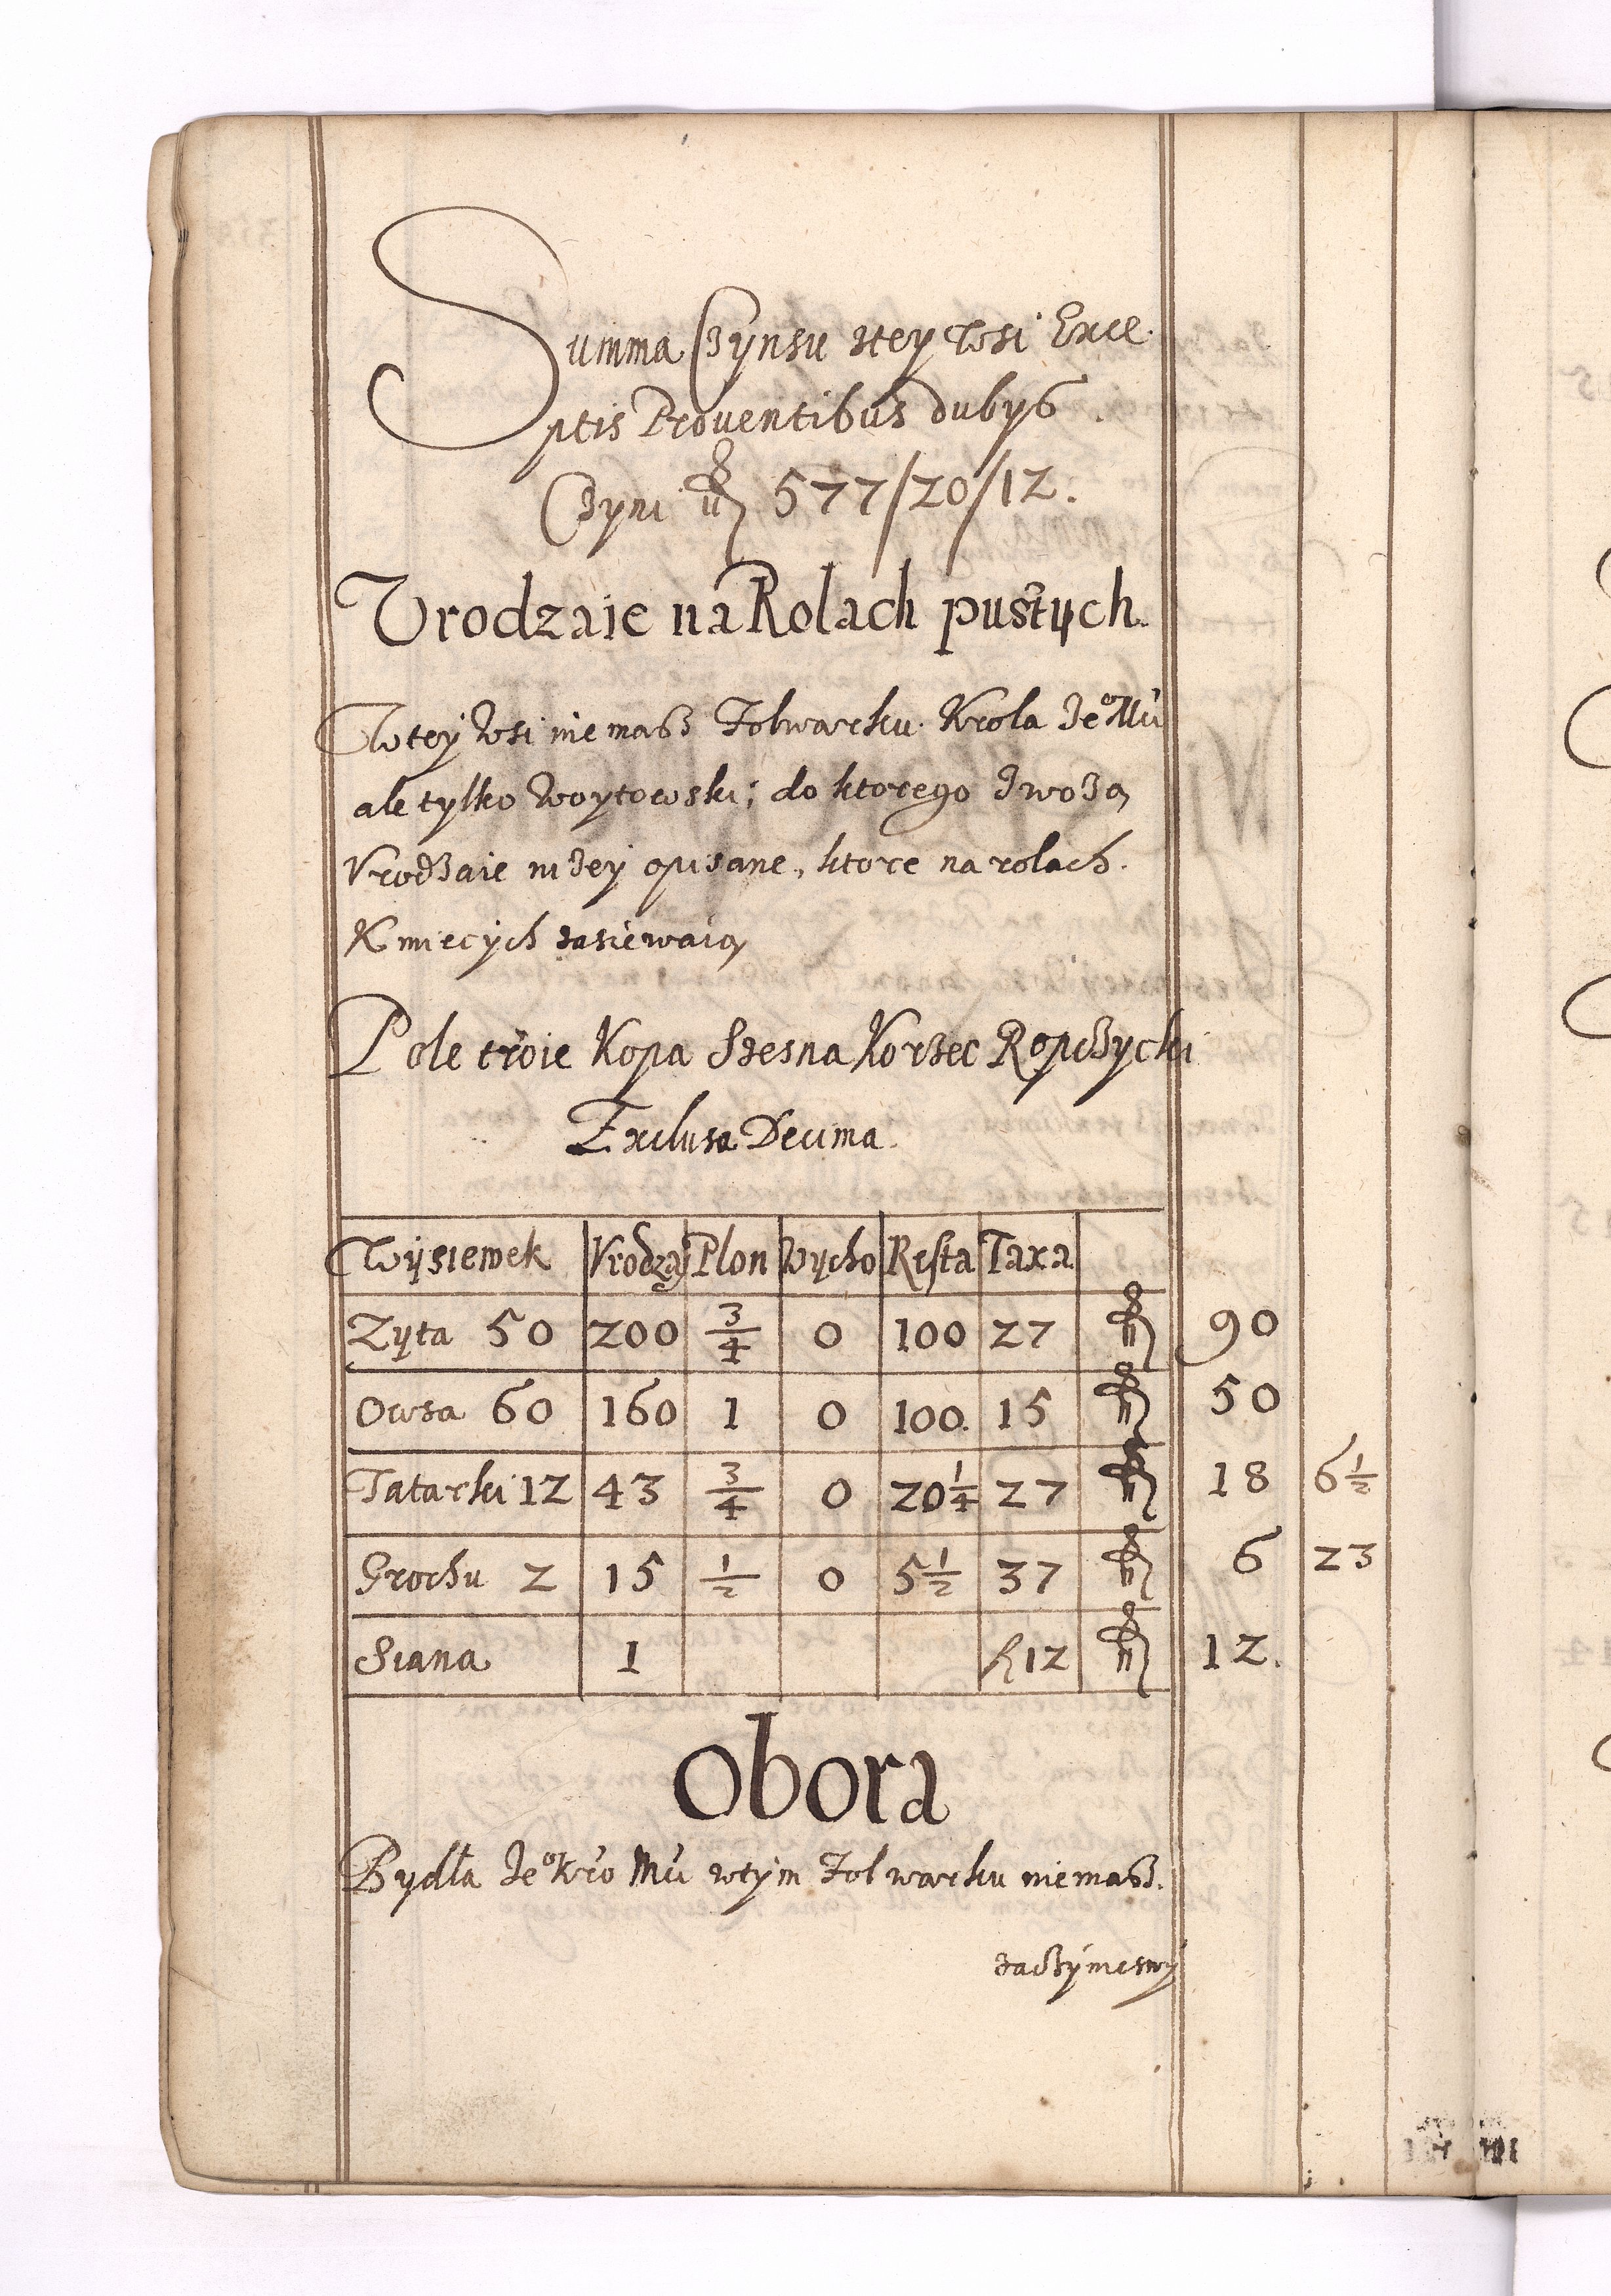 Summa Czynsu stey wsi Exce
ptis Proventibus dubys
Czyni fl 577/20/12.
Vrodzaie na Rolach pustych.
W tey Wsi niemasz Folwarku Krola Jeº Mći
ale tylko Woytowski; do ktorego zwożą
Vrodzaie niżey opisane, ktore na rolach
Kmiecych zasiewaią
Pole troie Kopa Szesna Korzec Ropczycki
Exclusa Decima.
Wysiewek Vrodzay Plon Wycho Resta Taxa
Zyta 50 200 3/4 0 100 27 fl 90
Owsa 60 160 1 0 100. 15 fl 50
Tatarki 12 43 3/4 0 20 1/4 27 fl 18 6 1/2
Grochu 2 15 1/2 0 5 1/2 37 fl 6 23
Siana 1 12 fl 12.
Obora
Bydła Jeº Kro Mći wtym Folwarku niemasz.